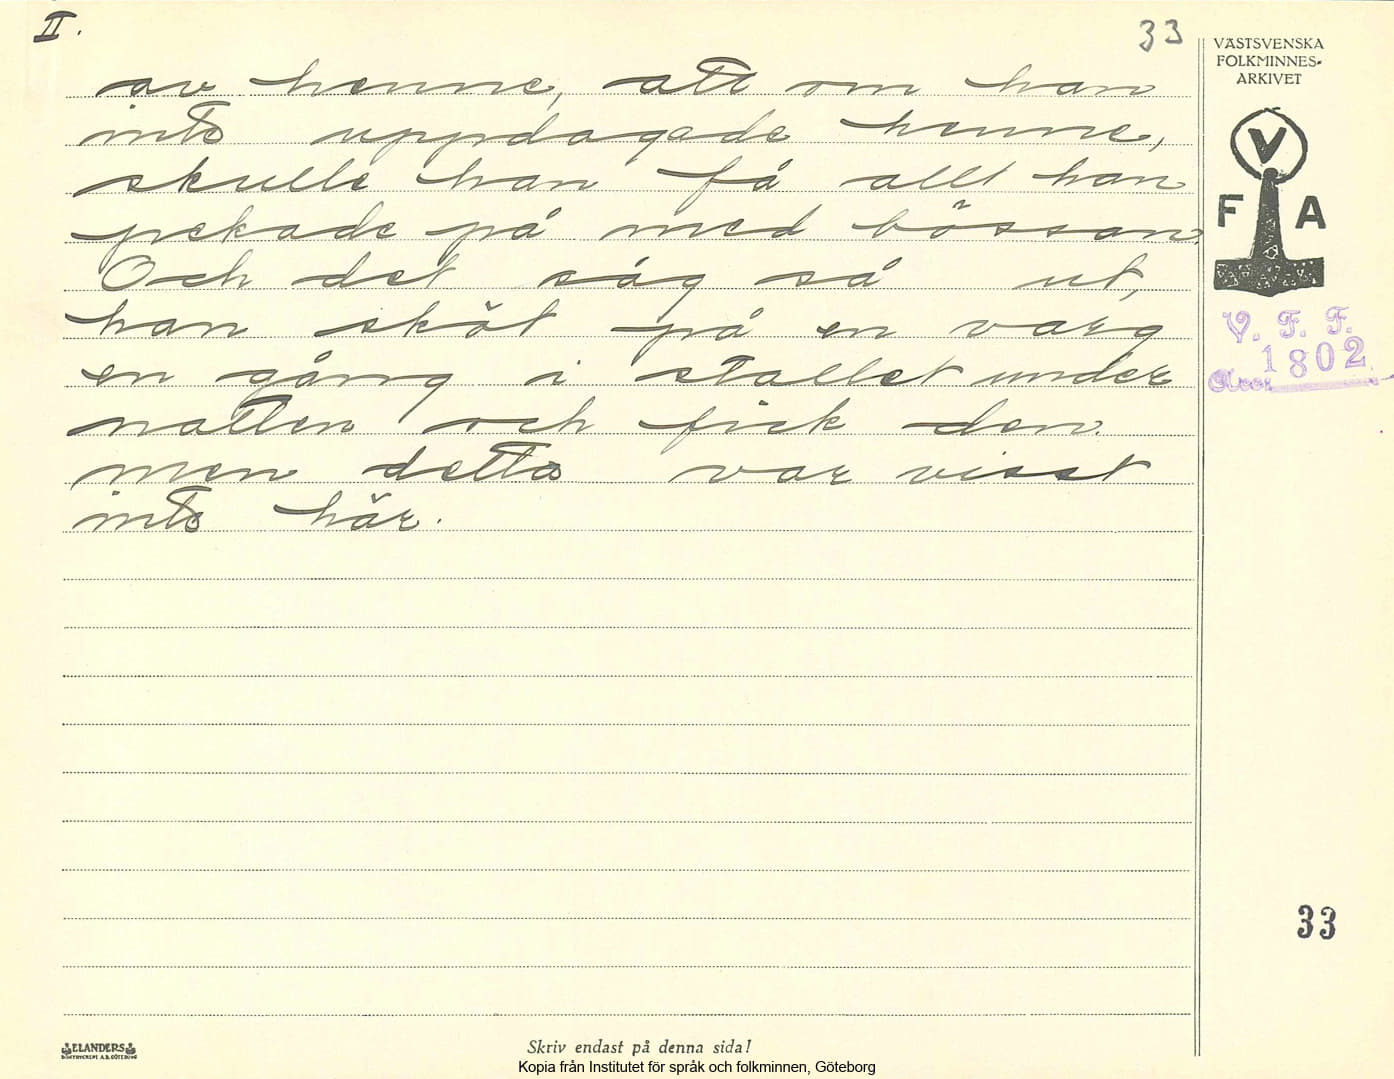 II.
33
VÄSTSVENSKA
FOLKMINNES-
ARKIVET
av henne, att om han
inte uppdagade henne,
skulle han få allt han
pekade på med bössan.
Och det såg så ut,
han sköt på en varg
en gång i stallet under
natten och fick den.
men detta var visst
inte här.
V
F A
V. F. F.
1802
Acc.
33
ELANDERS
BOKTRYCKERI A.B. GÖTEBORG
Skriv endast på denna sida!
Kopia från Institutet för språk och folkminnen, Göteborg